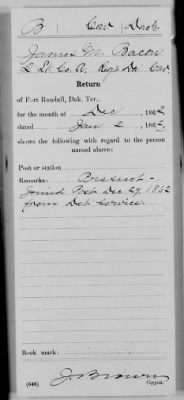 B Cav Dak
James M. Bacon
2 Lt. Co. A,
Return
of Fort Randall, Dak. Ter.,
for the month of Dec, 1862
dated Jan 2, 186
shows the following with regard to the person
named above:
Post or station
Remarks: Present -
Joined Post Dec 27, 1862
from Det. Service.
Book mark:
J Brown
(646) Copyist.